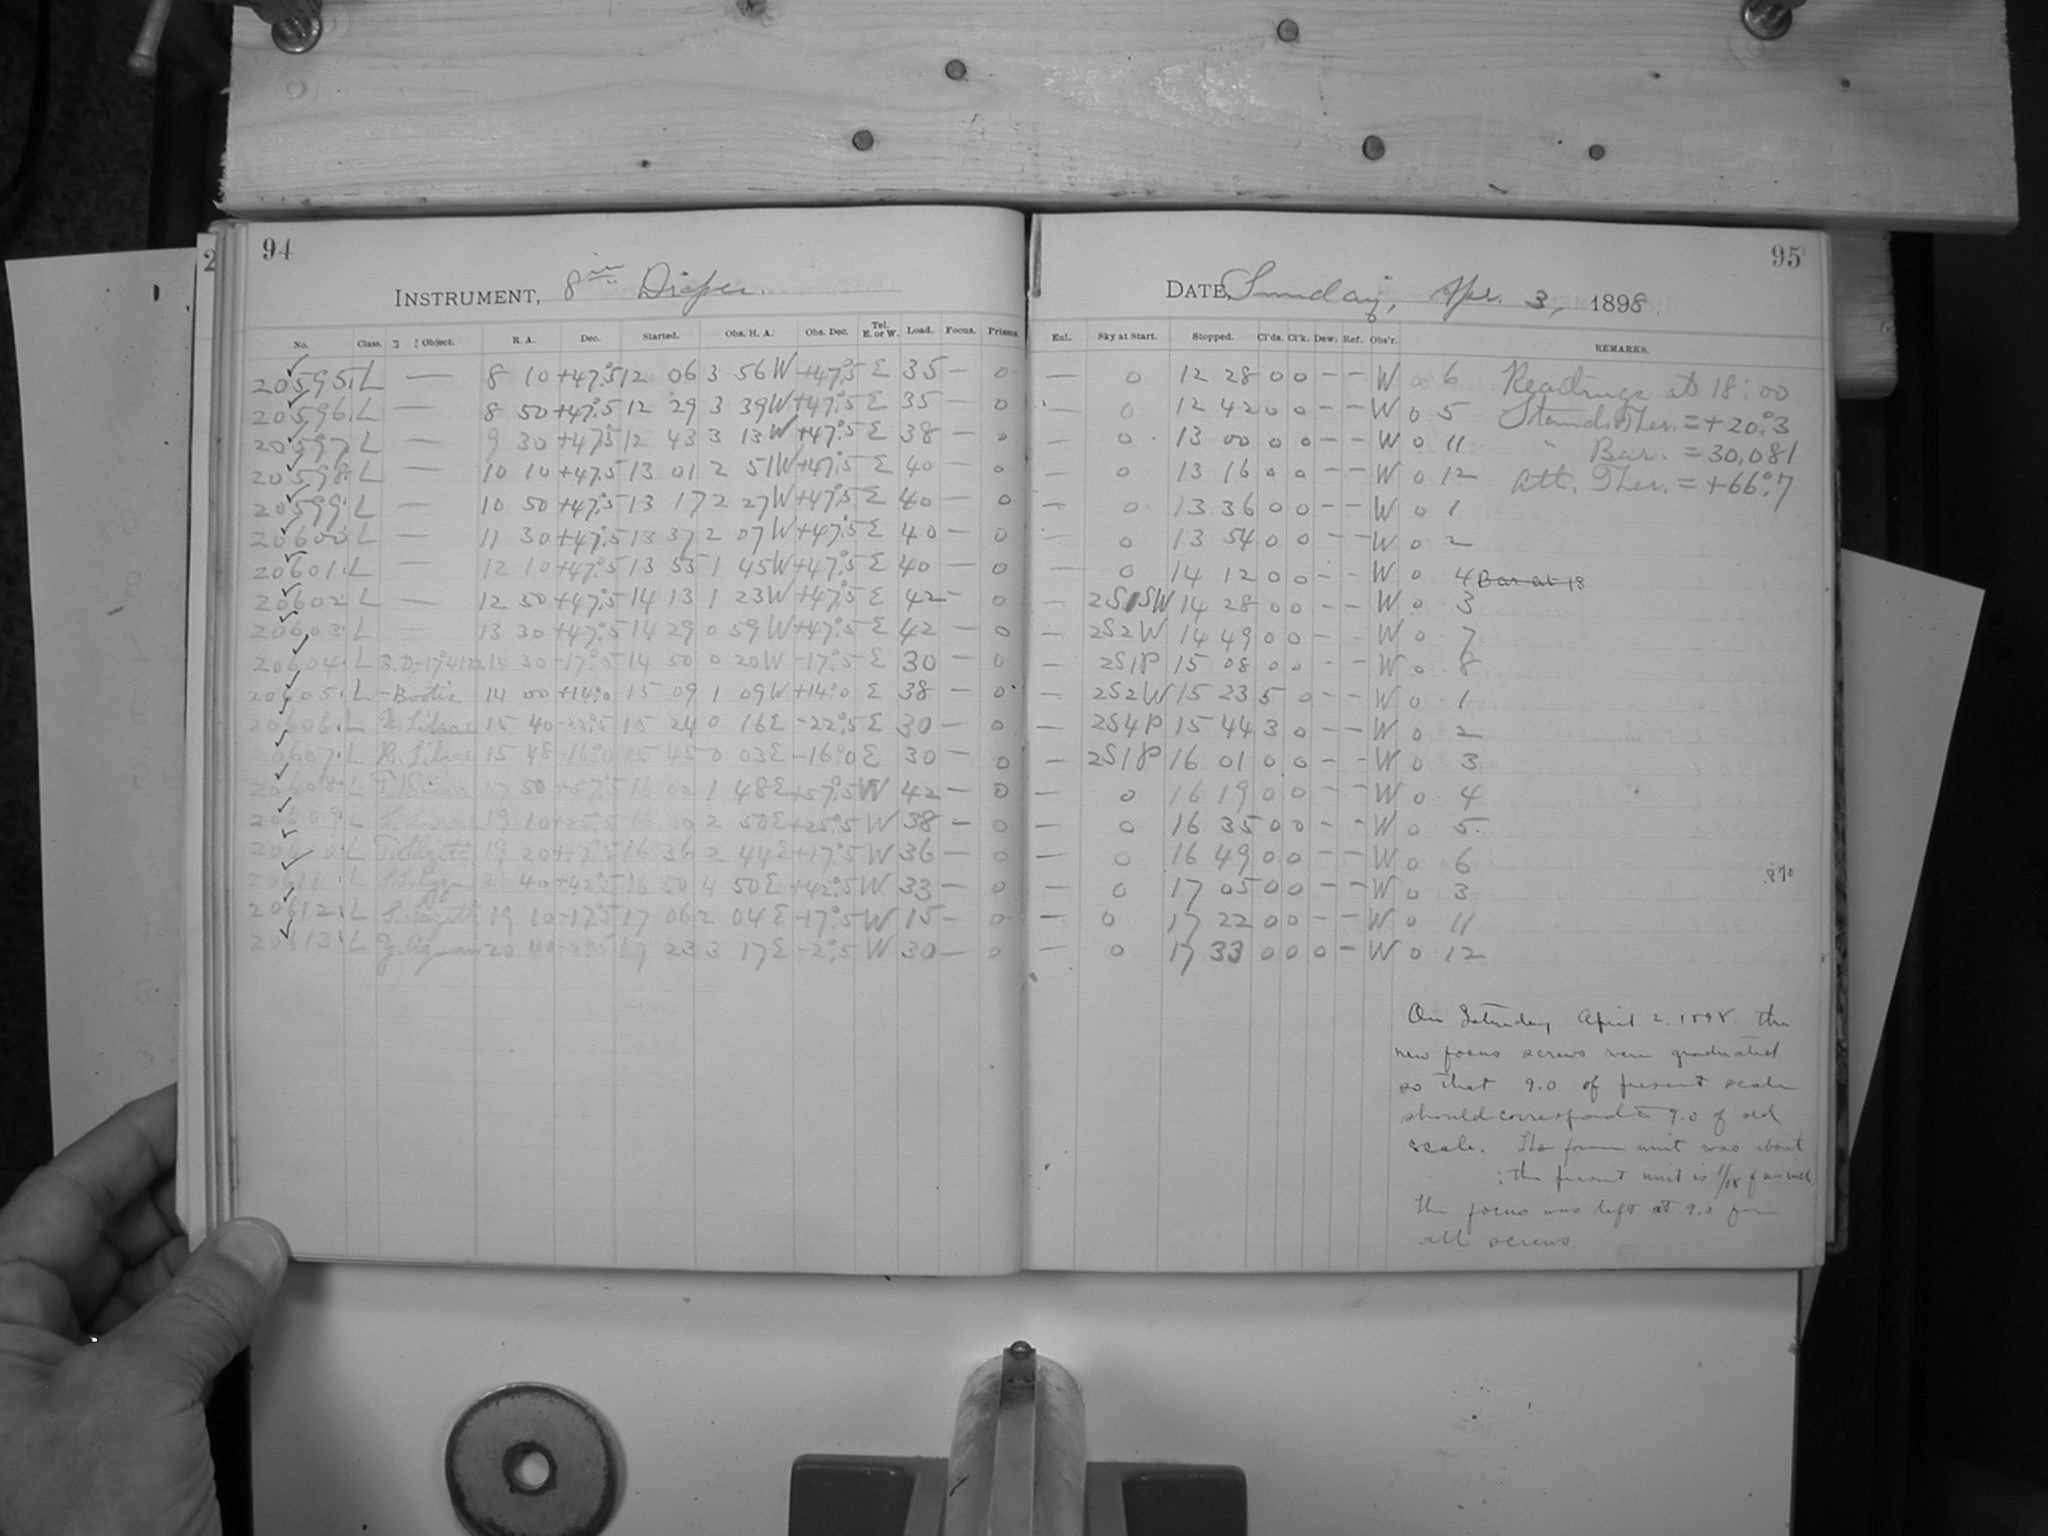 94
INSTRUMENT, 8in Draper.
No. Class. Object. R. A. Dec. Started. Obs. H. A. Obs. Dec. Tel. E. or W. Load. Focus. Prisms.
20595. L — 8 10 +47°.5 12 06 3 56 W +47°.5 E 35 — 0
20596. L — 8 50 +47°.5 12 29 3 39 W +47°.5 E 35 — 0
20597. L — 9 30 +47°.5 12 43 3 13 W +47°.5 E 38 — 0
20598. L — 10 10 +47°.5 13 01 2 51 W +47°.5 E 40 — 0
20599. L — 10 50 +47°.5 13 17 2 27 W +47°.5 E 40 — 0
20600. L — 11 30 +47°.5 13 37 2 07 W +47°.5 E 40 — 0
20601. L — 12 10 +47°.5 13 55 1 45 W +47°.5 E 40 — 0
20602. L — 12 50 +47°.5 14 13 1 23 W +47°.5 E 42 — 0
20603. L — 13 30 +47°.5 14 29 0 59 W +47°.5 E 42 — 0
20604. L B.D.-17°4122 14 30 -17°.5 14 50 0 20 W -17°.5 E 30 — 0
20605. L -Bootis 14 00 +14°.0 15 09 1 09 W +14°.0 E 38 — 0
20606. L Librae 15 40 -22°.5 15 24 0 16 E -22°.5 E 30 — 0
20607. L R. Librae 15 48 -16°.0 15 45 0 03 E -16°.0 E 30 — 0
20608. L 17 50 +57°.5 16 02 1 48 E +57°.5 W 42 — 0
20609. L 19 10 +25°.5 16 20 2 50 E +25°.5 W 38 — 0
20610. L 19 20 +17°.5 16 36 2 44 E +17°.5 W 36 — 0
20611. L 40 +42°.5 16 50 4 50 E +42°.5 W 33 — 0
20612. L 19 10 -17°.5 17 06 2 04 E -17°.5 W 15 — 0
20613. L 20 40 -2°.5 17 23 3 17 E -2°.5 W 30 — 0
95
DATE, Sunday, Apr. 3, 1898.
Enl. Sky at Start. Stopped. Cl'ds. Cl'k. Dew. Ref. Obs'r. REMARKS.
— 0 12 28 0 0 – – W 0 6 Readings at 18:00
— 0 12 42 0 0 – – W 0 5 Stand. Ther. = +20°.3
— 0 13 00 0 0 – – W 0 11 " Bar. = 30.081
— 0 13 16 0 0 – – W 0 12 Att. Ther. = +66°.7
— 0 13 36 0 0 – – W 0 1
— 0 13 54 0 0 – – W 0 2
— 0 14 12 0 0 – – W 0 4 Bar at 18
— 2S1SW 14 28 0 0 – – W 0 3
— 2S2W 14 49 0 0 – – W 0 7
— 2S1P 15 08 0 0 – – W 0 8
— 2S2W 15 23 5 0 – – W 0 1
— 2S4P 15 44 3 0 – – W 0 2
— 2S1P 16 01 0 0 – – W 0 3
— 0 16 19 0 0 – – W 0 4
— 0 16 35 0 0 – – W 0 5
— 0 16 49 0 0 – – W 0 6
— 0 17 05 0 0 – – W 0 3
— 0 17 22 0 0 – – W 0 11
— 0 17 33 0 0 0 – W 0 12
On Saturday April 2. 1898. the
new focus screws were graduated
so that 9.0 of present scale
should correspond to 9.0 of old
scale. The former unit was about
: the present unit is 1/18 of an inch
The focus was left at 9.0 for
all screws.